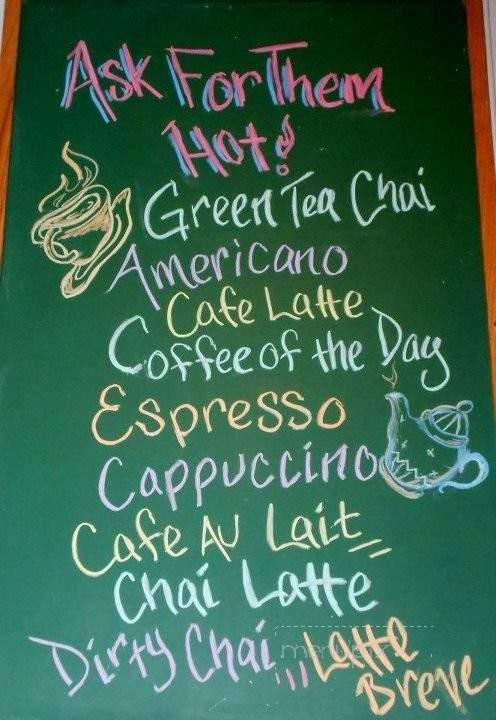 Ask For Them
Hot!
Green Tea Chai
Americano
Cafe Latte
Coffee of the Day
Espresso
Cappuccino
Cafe Au Lait
Chai Latte
Dirty Chai,,, Latte
Breve